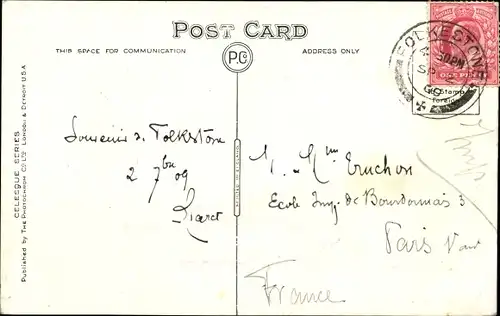 POST CARD
THIS SPACE FOR COMMUNICATION
ADDRESS ONLY
P.C.
FOLKESTONE
30PM
SP 2
09
ONE PENNY
Stamp
foreign
CELESQUE SERIES
Published by THE PHOTOCHROM CO. LTD. LONDON & DETROIT U.S.A.
Souvenir de Folkstone
2 7bre 09
M. Mme Truchon
Ecole Imp. de Bourdonnais 3
Paris
France